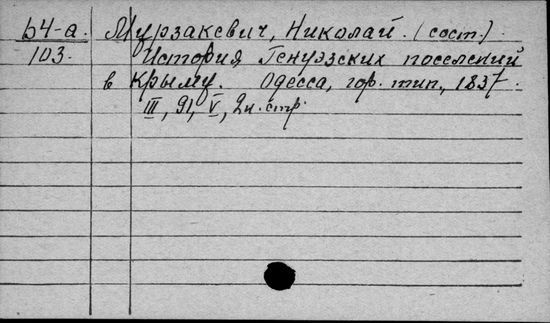 54-а. Мурзакевич, Николай. (сост.)
103. История Генуэзских поселений
в Крыму. Одесса, гор. тип., 1837.
III, 91, V, 2н. стр.